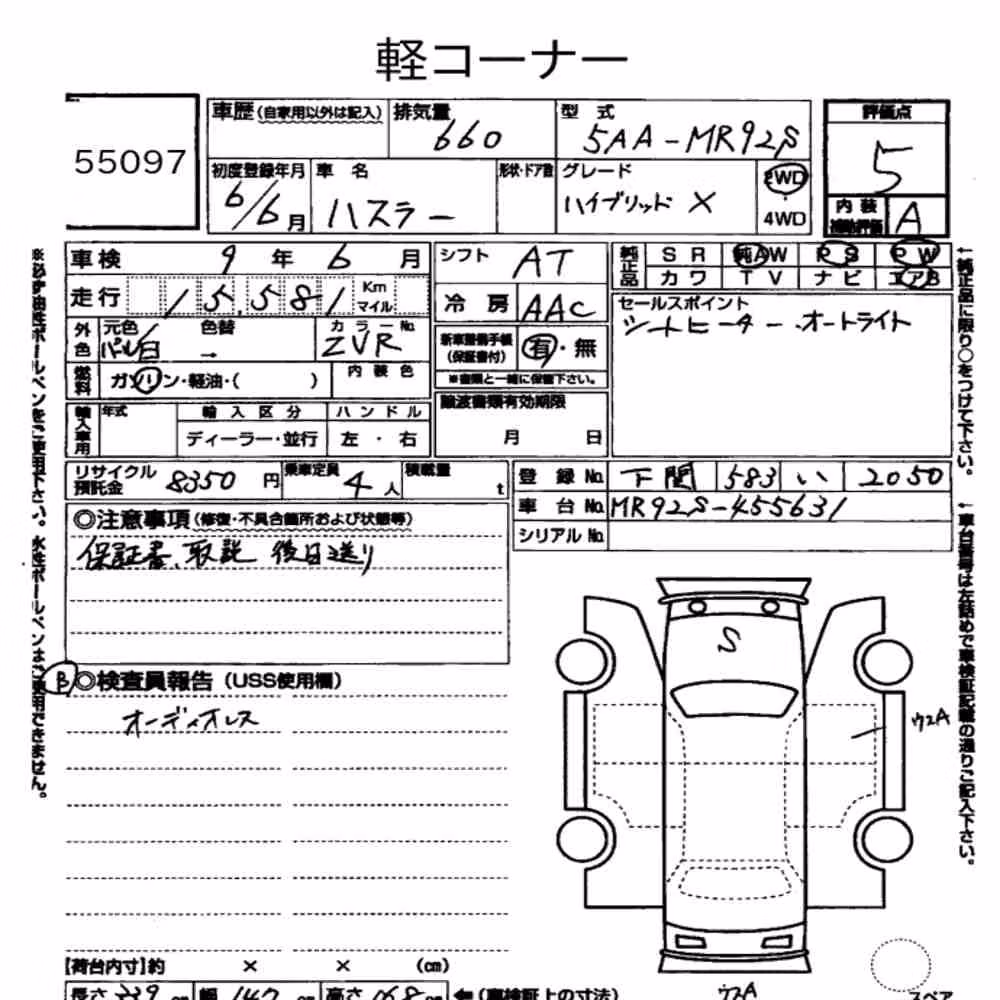 軽コーナー
55097
車歴 (自家用以外は記入) 排気量 660 型式 5AA-MR92S 評価点 5
初度登録年月 6/6月 車名 ハスラー 形状・ドア数 グレード ハイブリッド X 2WD 4WD 内装補助評価 A
車検 9年 6月 シフト AT 純正品 SR 純AW PS PW
カワ TV ナビ エアB
走行 15,581 Km マイル 冷房 AAC セールスポイント
シートヒーター・オートライト
外色 元色 パール白 色替 → カラーNo. ZVR 新車整備手帳(保証書付) 有・無
燃料 ガソリン・軽油・( ) 内装色 ※書類と一緒に保管下さい。
輸入車用 年式 輸入区分 ハンドル 譲渡書類有効期限
ディーラー・並行 左・右 月 日
リサイクル預託金 8350円 乗車定員 4人 積載量 t 登録No. 下関 583 い 2050
車台No. MR92S-455631
シリアルNo.
◎注意事項 (修復・不具合箇所および状態等)
保証書、取説 後日送り
β ◎検査員報告 (USS使用欄)
オーディオレス
S
ウエA
【荷台内寸】約 × × (cm)
長さ 339 cm 幅 147 cm 高さ 168 cm ←(車検証上の寸法)
ワエA
スペア
※必ず油性ボールペンをご使用下さい。水性ボールペンはご使用できません。
←純正品に限り○をつけて下さい。
←車台番号は左詰めで車検証記載の通りご記入下さい。